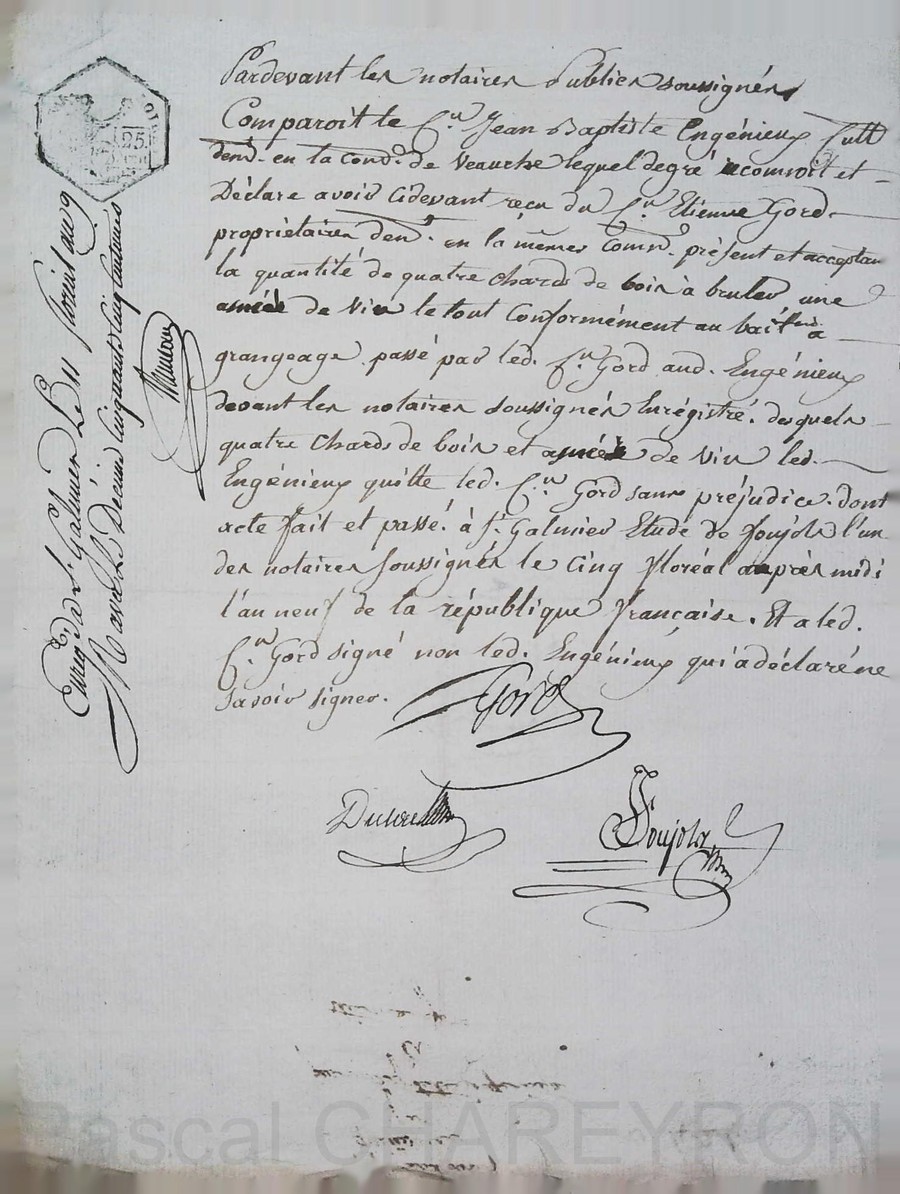 Pardevant les notaires Publics soussignés
Comparoît le C.en Jean Baptiste Engénieux Cult
dem.t en la Com.e de Veauche lequel de gré a comvoit et
Déclare avoir cidevant reçu du C.en Etienne Gord
propriétaires dem.t en la mêmes Comm.e présent et acceptan
la quantité de quatre chards de bois à bruler une
année de vin le tout Conformément au bail à
grangeage passé pas led. C.en Gord aud. Engénieux
devant les notaires soussignés Enrégistré. desquels
quatre chards de bois et année de vin led.
Engénieux quitte led. C.en Gord sans préjudice. dont
acte fait et passé à S.t Galmier Etude de Soujols l'un
des notaires soussignés le Cinq floréal après midi
l'an neuf de la république française. Et a led.
C.en Gord signé non led. Engénieux qui a déclaré ne
savoir signer.
Gord
Soujols
Enreg. à S.t Galmier Le 11 floréal an 9
Décime cinquante cinq centimes
25
Pascal CHAREYRON